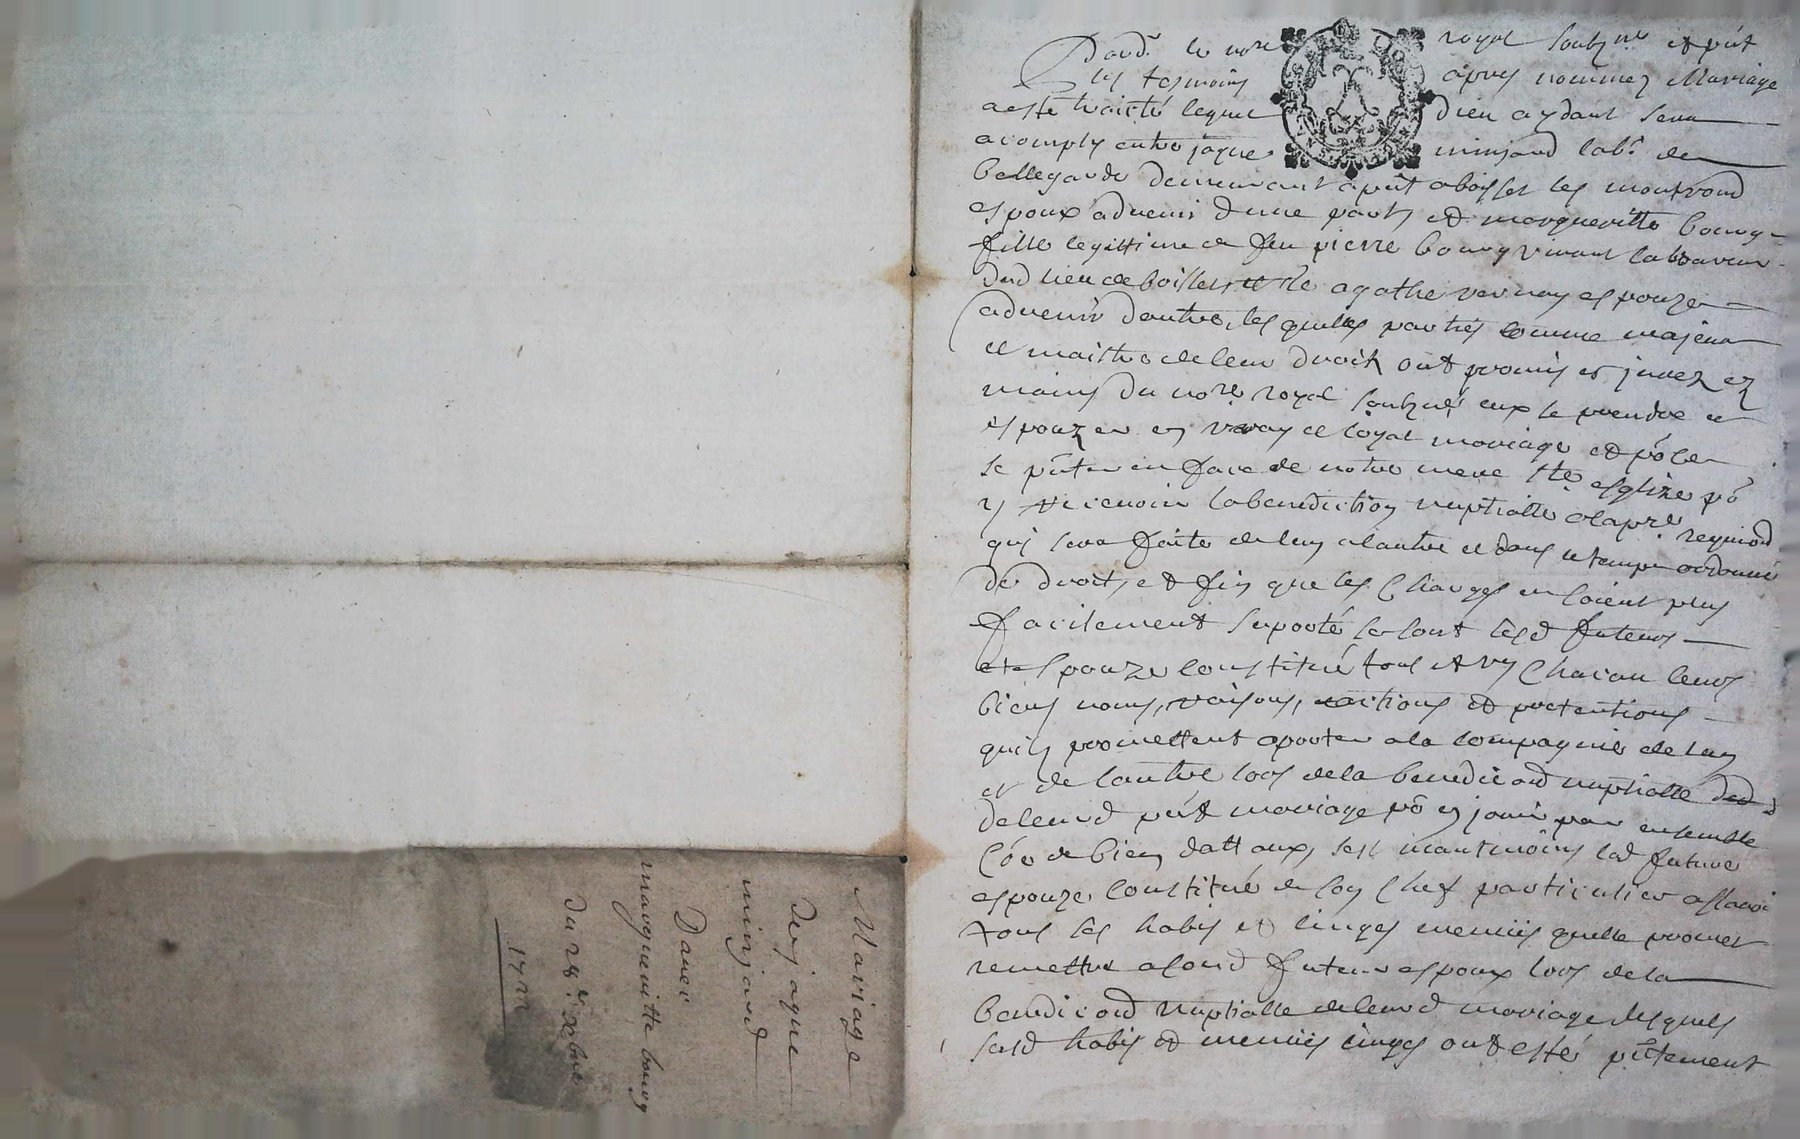 Pard.t le no.re royal soubz.né et p.nt
les tesmoins apres nommez Mariage
a esté traicté lequel dieu aydant sera
acomply entre jaque minjard lab.r de
bellegarde demeurant a p.nt a boisset les montrond
espoux advenir dune part, et margueritte bourg
fille legittime de feu pierre bourg vivant laboureur
dud lieu de boisset et de agathe vernay espouze
advenir dautre, les quelles parties comme majeur
et maistre de leur droit ont promis et jurez ez
mains du no.re royal soubz.né eux se prendre et
espouzer en vray et loyal mariage et po.r ce
se p.nter en face de notre mere s.te esglize po.r
y recevoir la benediction nuptialle a la p.re requis.on
qui sera faite de lun a lautre et dans le temps ordonné
de droit, et fin que les charges en soient plus
facilement suporté se sont lesd futeurs
espouze constitué tous et un chacun leurs
biens noms, raisons, actions et pretentions
quils promettent aporter a la compagnie de lun
et de lautre lors de la benedi.on nuptialle
de leurd p.nt mariage po.r en jouir ensemble
co.e de bien dottaux, sest neantmoins lad future
espouze constitué de son chef particulier assavoir
tous ses habis et linges menus quelle promet
remettre a sond futeur espoux lors de la
benedi.on nuptialle de leurd mariage, desquels
susd habis et menus linges ont esté p.ntement
Mariage
de jaque
minjard
Davec
margueritte bourg
Du 28.e xbre